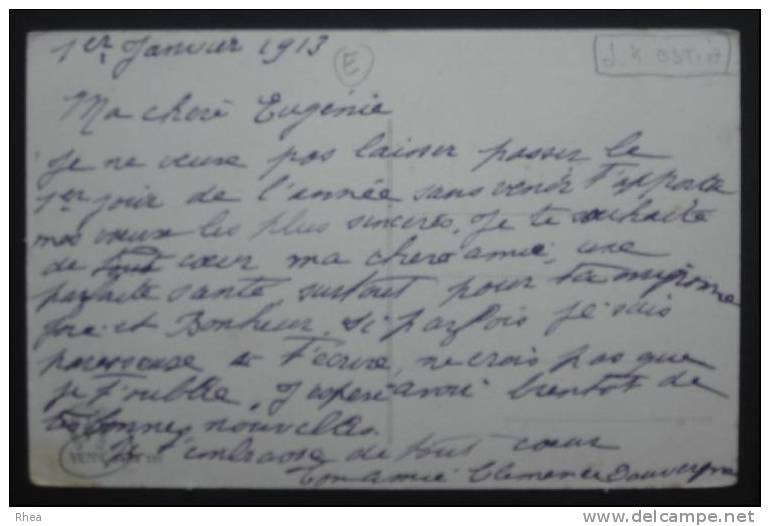 1er Janvier 1913
E
Ma chere Eugénie
Je ne veux pas laisser passer le
1er jour de l'année sans venir t'apporte
mes vœux les plus sincères, Je te souhaite
de tout cœur ma chere amie, une
parfaite santé, surtout pour ta mignonne
et Bonheur, si parfois je suis
paresseuse à t'écrire, ne crois pas que
je t'oublie, J'espere avoir bientot de
tes bonnes nouvelles.
Je t'embrasse de tout cœur
Ton amie Clemence
Rhea
http://www.delcampe.net